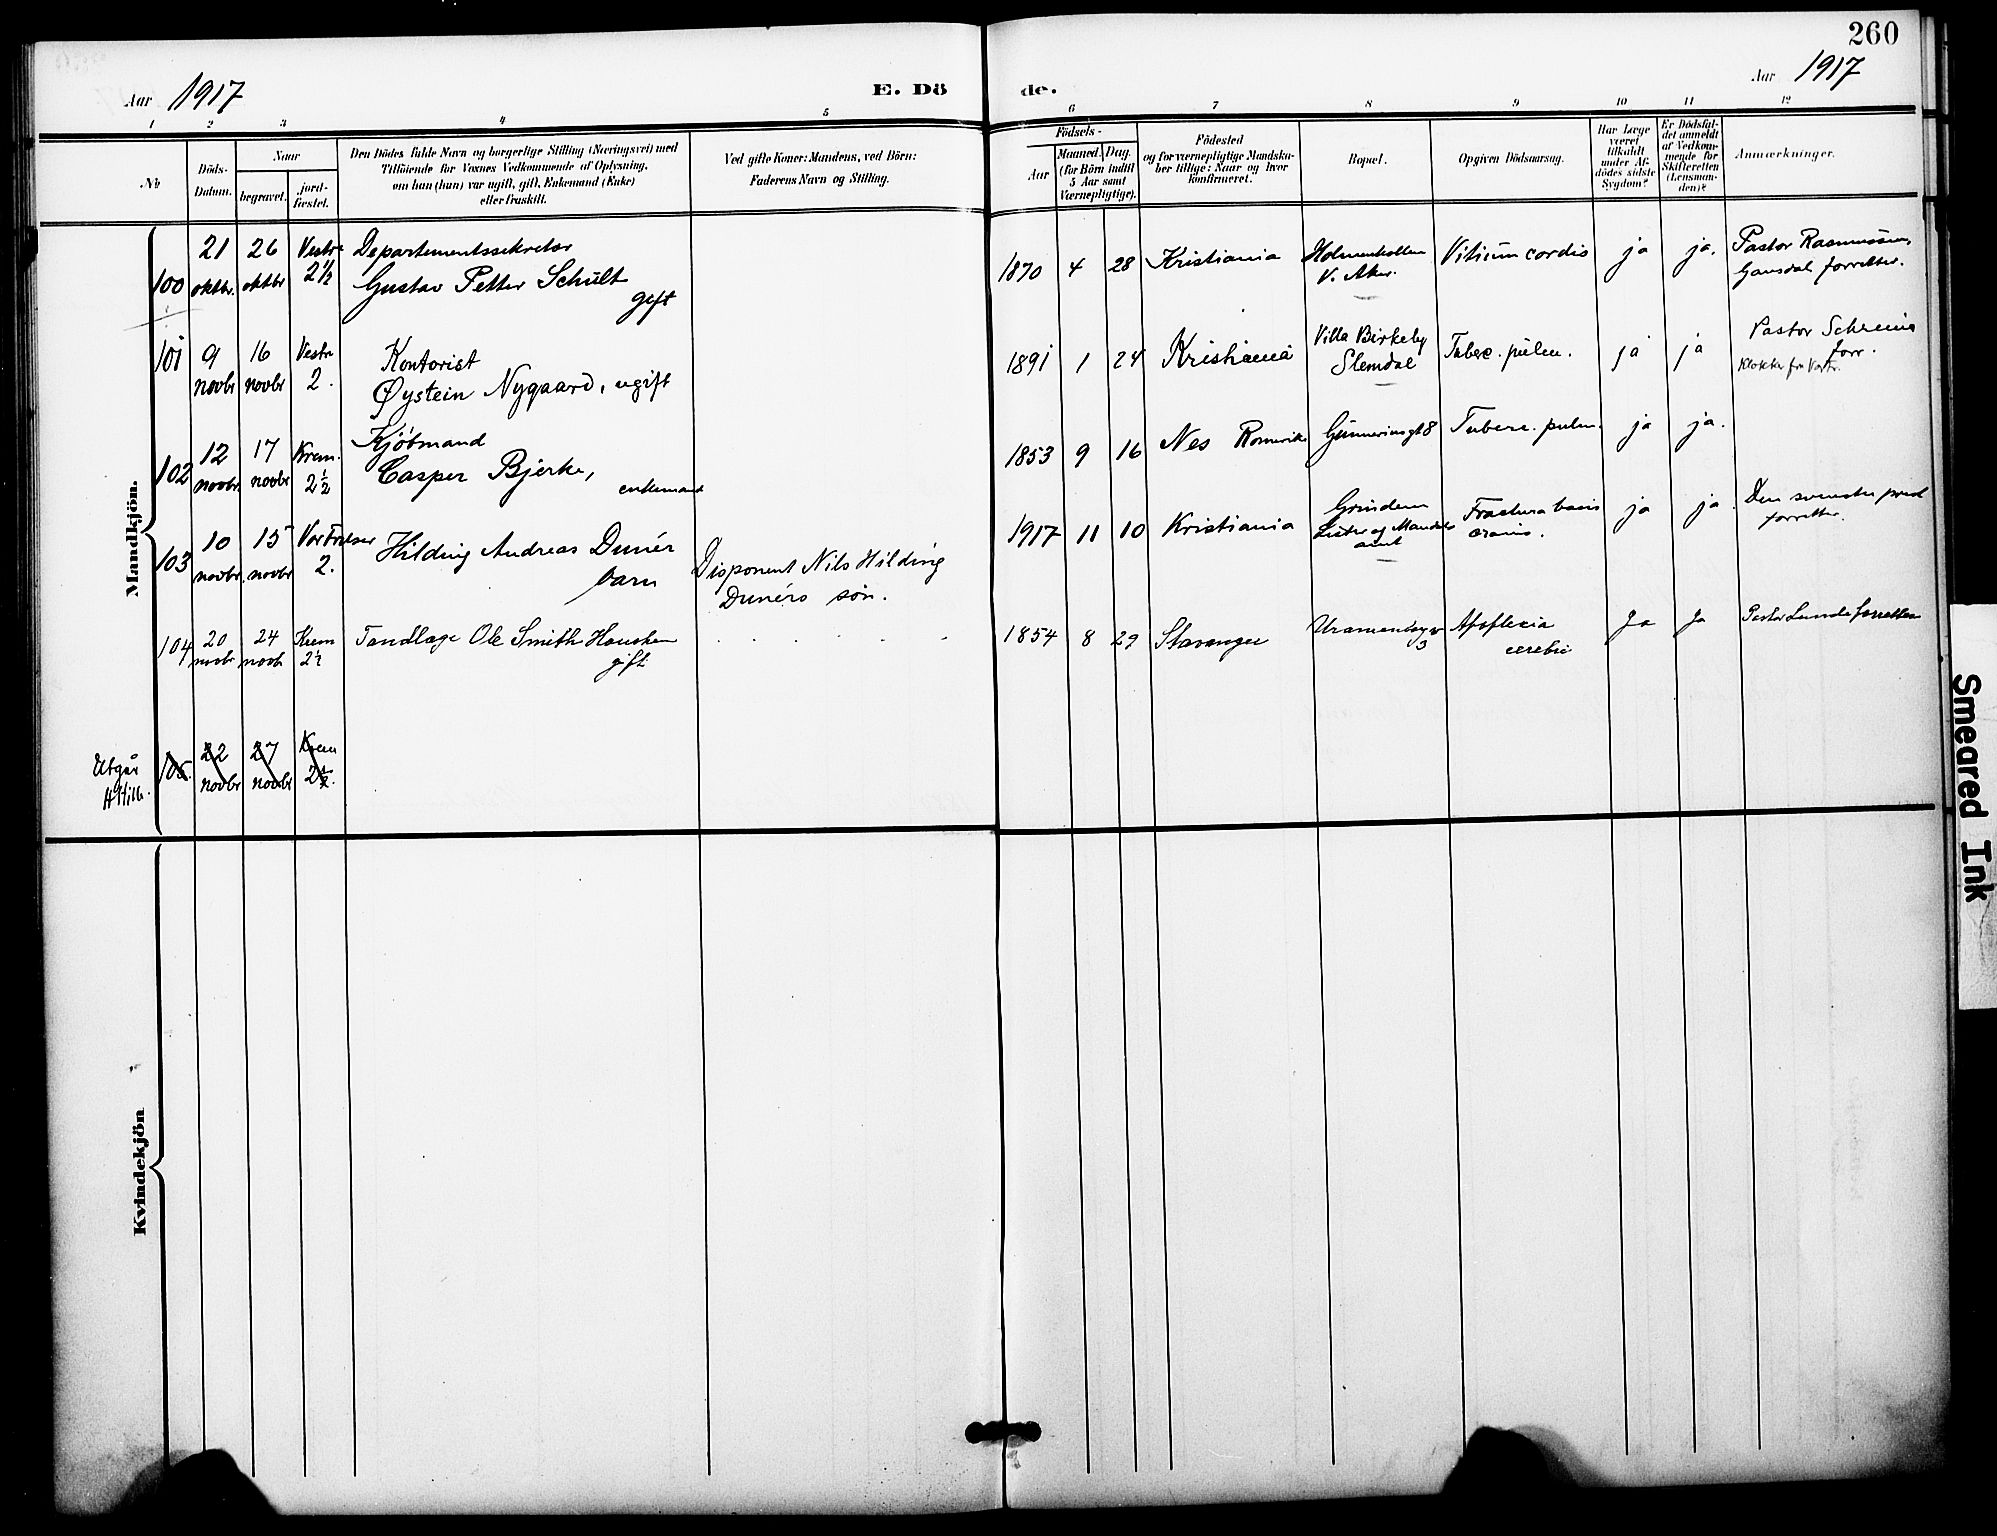 260
Aar 1917
E. Dö
de.
Aar 1917
1 2 3 4 5 6 7 8 9 10 11 12
No
Döds-
Datum.
Naar
begravet.
jord-
fæstet.
Den Dödes fulde Navn og borgerlige Stilling (Næringsvei) med
Tilföiende for Voxnes Vedkommende af Oplysning,
om han (hun) var ugift, gift, Enkemand (Enke)
eller fraskilt.
Ved gifte Koner: Mandens, ved Börn:
Faderens Navn og Stilling.
Födsels-
Aar
Maaned. Dag.
(for Börn indtil
5 Aar samt
Værnepligtige).
Födested
og for værnepligtige Mandska-
ber tillige: Naar og hvor
konfirmeret.
Bopæl.
Opgiven Dödsaarsag.
Har Læge
været
tilkaldt
under Af-
dödes sidste
Sygdom?
Er Dödsfal-
det anmeldt
af Vedkom-
mende for
Skifteretten
(Lensman-
den)?
Anmærkninger.
Mandkjön.
100
21
oktbr.
26
oktbr
Vestre
2½
Departementssekretær
Gustav Petter Schult
gift
1870 4 28 Kristiania
Holmenkollen
V. Aker.
Vitium cordis
ja
ja.
Pastor Rasmussen,
forretter.
101
9
novbr
16
novbr
Vestre
2.
Kontorist
Øystein Nygaard, ugift
1891 1 24 Kristiania
Villa Birkeby
Slemdal
Tuberc. pulm.
ja
ja
Pastor Schreiner
forr.
Klokker fra Vestr.
102
12
novbr.
17
novbr
Krem.
2½
Kjøbmand
Casper Bjerke,
enkemand
1853 9 16 Nes Romerike
Gunnerusgt 8
Tuberc. pulm.
ja
ja.
103
10
novbr.
15
novbr
Vor Frelser
2.
Hilding Andreas Dunér
barn
Disponent Nils Hilding
Dunérs søn.
1917 11 10 Kristiania
Grindem
Lister og Mandals
amt
Fractura basis
cranii.
ja
ja.
Den svenske prest
forretter.
104
20
novbr
24
novbr
Krem
2½
Tandlæge Ole Smith Housken
gift
1854 8 29 Stavanger
Uranienborgv
3
Apoplexia
cerebri
Ja
Ja
Pastor Lunde forretter
Utgår
105.
22
novbr
27
novbr
Krem
2½.
Kvindekjön
Smeared Ink